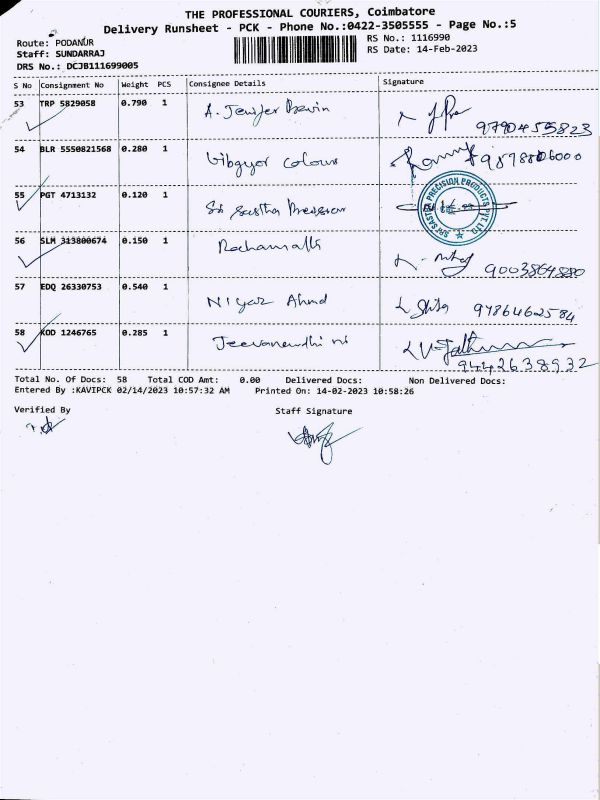 THE PROFESSIONAL COURIERS, Coimbatore
Delivery Runsheet - PCK - Phone No.:0422-3505555 - Page No.:5
Route: PODANUR
RS No.: 1116990
Staff: SUNDARRAJ
RS Date: 14-Feb-2023
DRS No.: DCJB111699005
S No Consignment No Weight PCS Consignee Details Signature
53 TRP 5829058 0.790 1 A. Jenifer
9790455823
54 BLR 5550821568 0.280 1 Vibgyor Colours
9878806000
55 PGT 4713132 0.120 1 Sri Sastha Precision
SRI SASTHA PRECISION PRODUCTS PVT LTD.
56 SLM 313800674 0.150 1
9003864880
57 EDQ 26330753 0.540 1 Niyaz Ahmd
9786462584
58 KOD 1246765 0.285 1
9442638932
Total No. Of Docs: 58 Total COD Amt: 0.00 Delivered Docs: Non Delivered Docs:
Entered By :KAVIPCK 02/14/2023 10:57:32 AM Printed On: 14-02-2023 10:58:26
Verified By Staff Signature